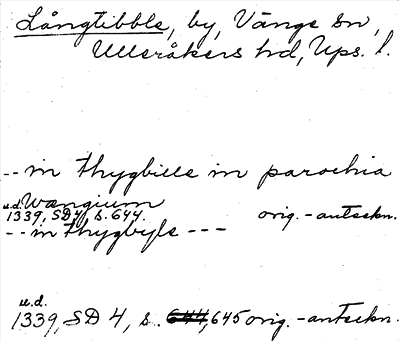 Långtibble, by, Vänge sn,
Ulleråkers hd, Ups. l.
-- in thygbille in parochia
Wængium
u.d.
1339, SD 4, s. 644. orig. - anteckn.
-- in thygbyle ---
u.d.
1339, SD 4, s. 644, 645 orig. - anteckn.